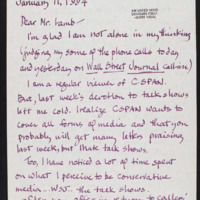 January 11, 1994
Dear Mr. Lamb -
I'm glad I am not alone in my thinking
(judging my some of the phone calls today
and yesterday on Wall Street Journal call-in)
I am a regular viewer of CSPAN.
But, last week's devotion to talk shows
left me cold. I realize CSPAN wants to
cover all forms of media and that you
probably will get many letters praising
last week, but I hate talk shows.
Too, I have noticed a lot of time spent
on what I perceive to be conservative
media - WSJ. the talk shows.